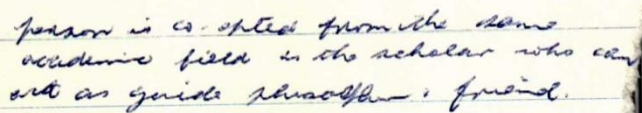 person is co-opted from the same
academic field as the scholar who can
act as guide philosopher & friend.